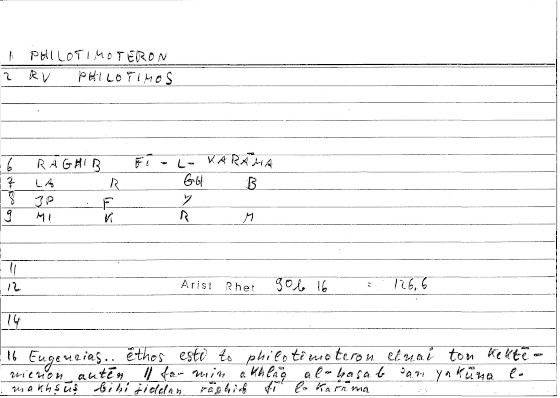 1 PHILOTIMOTERON
2 RV PHILOTIMOS
6 RĀGHIB FĪ-L-KARĀMA
7 LA R GH B
8 JP F Y
9 MI K R M
11
12 Arist Rhet 90b 16 = 126,6
14
16 Eugeneias.. ēthos esti to philotimoteron einai ton kektē-
menon autēn // fa-min akhlāq al-ḥasab ʾan yakūna l-
makhṣūṣ bihi jiddan rāghib fī l-karāma